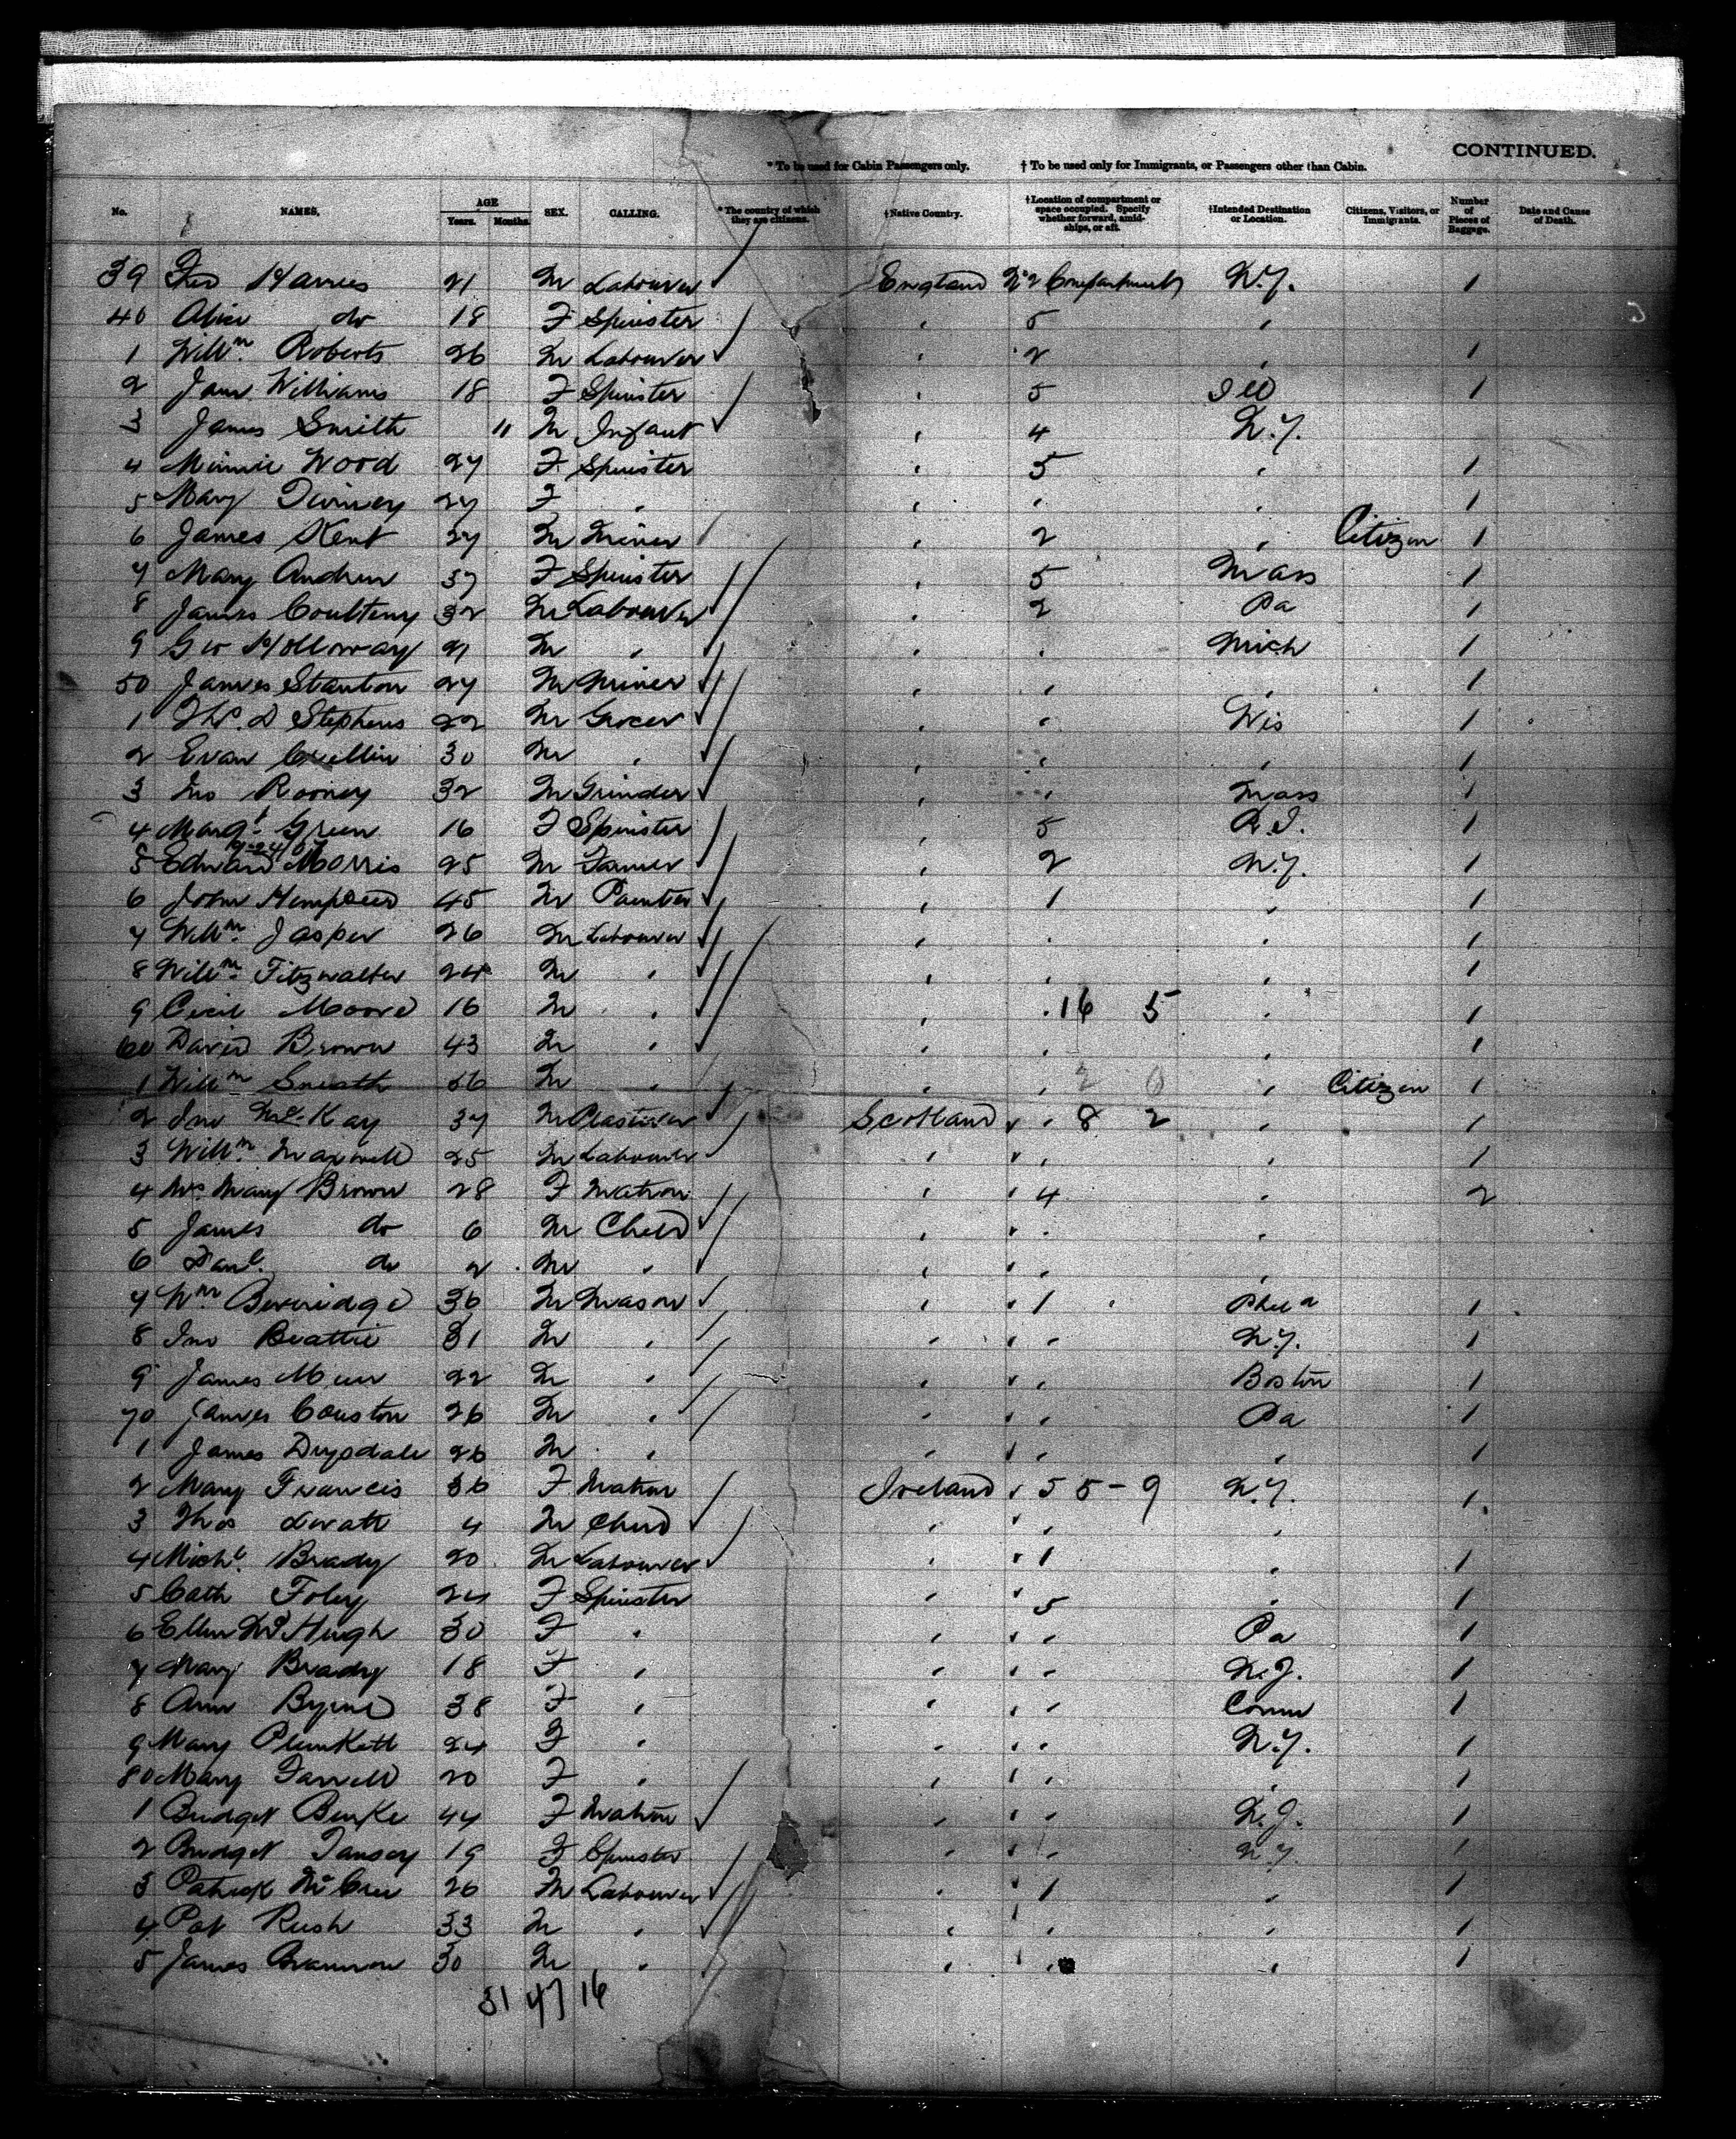 CONTINUED.
* To be used for Cabin Passengers only. † To be used only for Immigrants, or Passengers other than Cabin.
No. NAMES. AGE Years. Months. SEX. CALLING. * The country of which they are citizens. † Native Country. † Location of compartment or space occupied. Specify whether forward, amidships, or aft. † Intended Destination or Location. Citizens, Visitors, or Immigrants. Number of Pieces of Baggage. Date and Cause of Death.
39 Harries 21 M Labourer England No 2 Compartment N.Y. 1
40 Alice do 18 F Spinster " 5 "
1 Willm Roberts 26 M Labourer " 2 " 1
2 Jane Williams 18 F Spinster " 5 Ill 1
3 James Smith 11 M Infant " 4 N.Y.
4 Minnie Wood 27 F Spinster " 5 " 1
5 Mary 27 F " " " " 1
6 James Kent 27 M Miner " 2 " Citizen 1
7 Mary Andrew 37 F Spinster " 5 Mass 1
8 James 32 M Labourer " 2 Pa 1
9 Geo Holloway 21 M " " " Mich 1
50 James Stanton 27 M Miner " " " 1
1 Thos. D Stephens 22 M Grocer " " Wis 1
2 Evan 30 M " " " " 1
3 Jno Rooney 32 M Grinder " " Mass 1
4 Margt Green 16 F Spinster " 5 R.I. 1
5 Edward Morris 25 M Farmer " 2 N.Y. 1
6 John 45 M Painter " 1 " 1
7 Willm Jasper 26 M Labourer " " " 1
8 Willm Fitzwalter 24 M " " " " 1
9 Cecil Moore 16 M " " " 16 5 " 1
60 David Brown 43 M " " " " 1
1 Willm Sneath 56 M " " " 2 0 " Citizen 1
2 Jno McKay 37 M Plasterer Scotland " " 8 2 " 1
3 Willm Maxwell 25 M Labourer " " " " 1
4 Mrs Mary Brown 28 F Matron " " 4 " 2
5 James do 6 M Child " " " "
6 Danl do 2 M " " " " "
7 Wm Beveridge 36 M Mason " " 1 Phila 1
8 Jno Beattie 31 M " " " N.Y. 1
9 James Muir 22 M " " " " Boston 1
70 James Couston 26 M " " " " Pa 1
1 James Drysdale 26 M " " " " " 1
2 Mary Francis 36 F Matron Ireland " 5 5-9 N.Y. 1
3 Thos 4 M Child " " " "
4 Michl Brady 20 M Labourer " " 1 " 1
5 Cath Foley 24 F Spinster " " 5 " 1
6 Ellen McHugh 30 F " " " " Pa 1
7 Mary Brady 18 F " " " " N.J. 1
8 Ann Byrne 38 F " " " " Conn 1
9 Mary Plunkett 24 F " " " " N.Y. 1
80 Mary Farrell 20 F " " " " " 1
1 Bridget Burke 44 F Matron " " " N.J. 1
2 Bridget Tansey 19 F Spinster " " " N.Y. 1
3 Patrick 26 M Labourer " 1 " 1
4 Pat Rush 33 M " " " " " 1
5 James Brannon 30 M " " " " " 1
31 47 16